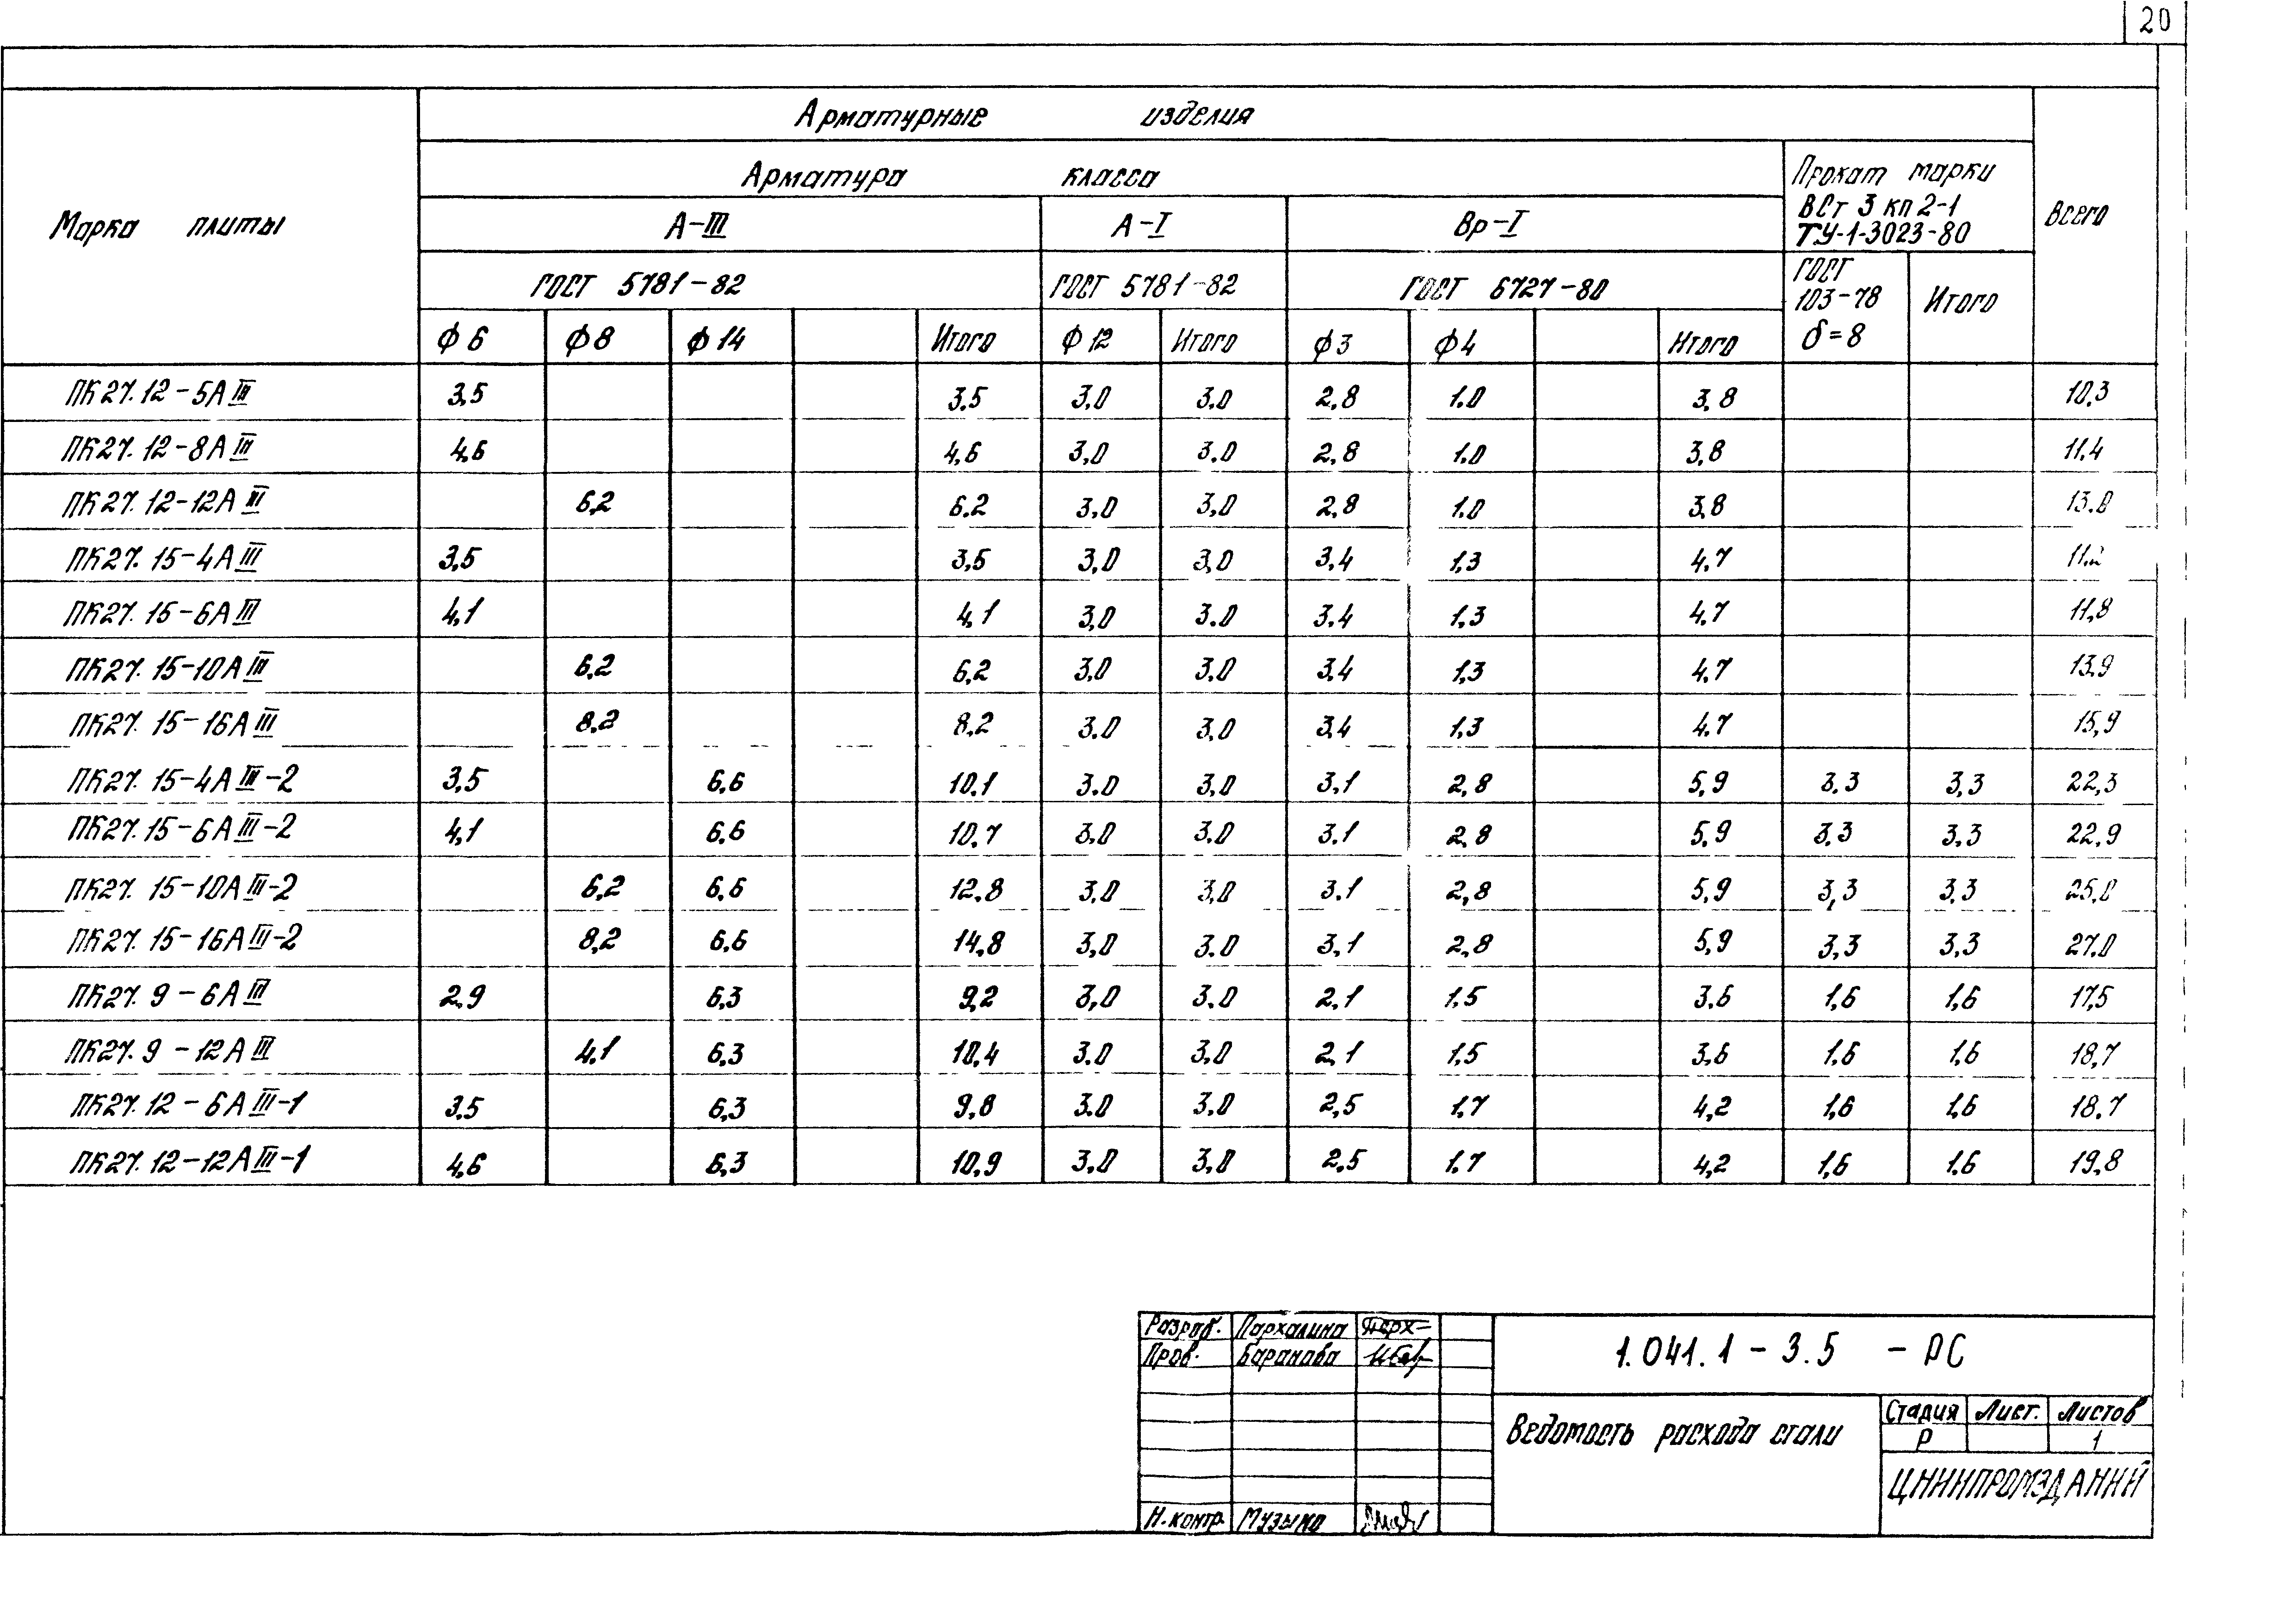 20
Арматурные изделия
Арматура класса
Прокат марки
ВСт 3 кп 2-1
ТУ-1-3023-80
Марка плиты
Всего
А-III А-I Вр-I
ГОСТ 5781-82 ГОСТ 5781-82 ГОСТ 6727-80
ГОСТ
103-78
δ=8
Итого
ϕ6 ϕ8 ϕ14 Итого ϕ12 Итого ϕ3 ϕ4 Итого
ПК27.12-5АIII 3,5 3,5 3,0 3,0 2,8 1,0 3,8 10,3
ПК27.12-8АIII 4,6 4,6 3,0 3,0 2,8 1,0 3,8 11,4
ПК27.12-12АIII 6,2 6,2 3,0 3,0 2,8 1,0 3,8 13,0
ПК27.15-4АIII 3,5 3,5 3,0 3,0 3,4 1,3 4,7 11,2
ПК27.15-6АIII 4,1 4,1 3,0 3,0 3,4 1,3 4,7 11,8
ПК27.15-10АIII 6,2 6,2 3,0 3,0 3,4 1,3 4,7 13,9
ПК27.15-16АIII 8,2 8,2 3,0 3,0 3,4 1,3 4,7 15,9
ПК27.15-4АIII-2 3,5 6,6 10,1 3,0 3,0 3,1 2,8 5,9 3,3 3,3 22,3
ПК27.15-6АIII-2 4,1 6,6 10,7 3,0 3,0 3,1 2,8 5,9 3,3 3,3 22,9
ПК27.15-10АIII-2 6,2 6,6 12,8 3,0 3,0 3,1 2,8 5,9 3,3 3,3 25,0
ПК27.15-16АIII-2 8,2 6,6 14,8 3,0 3,0 3,1 2,8 5,9 3,3 3,3 27,0
ПК27.9-6АIII 2,9 6,3 9,2 3,0 3,0 2,1 1,5 3,6 1,6 1,6 17,5
ПК27.9-12АIII 4,1 6,3 10,4 3,0 3,0 2,1 1,5 3,6 1,6 1,6 18,7
ПК27.12-6АIII-1 3,5 6,3 9,8 3,0 3,0 2,5 1,7 4,2 1,6 1,6 18,7
ПК27.12-12АIII-1 4,6 6,3 10,9 3,0 3,0 2,5 1,7 4,2 1,6 1,6 19,8
Разраб. Пархалина
Пров. Баранова
Н.контр. Музыко
1.041.1-3.5 -РС
Ведомость расхода стали
Стадия Лист. Листов
Р 1
ЦНИИПРОМЗДАНИЙ